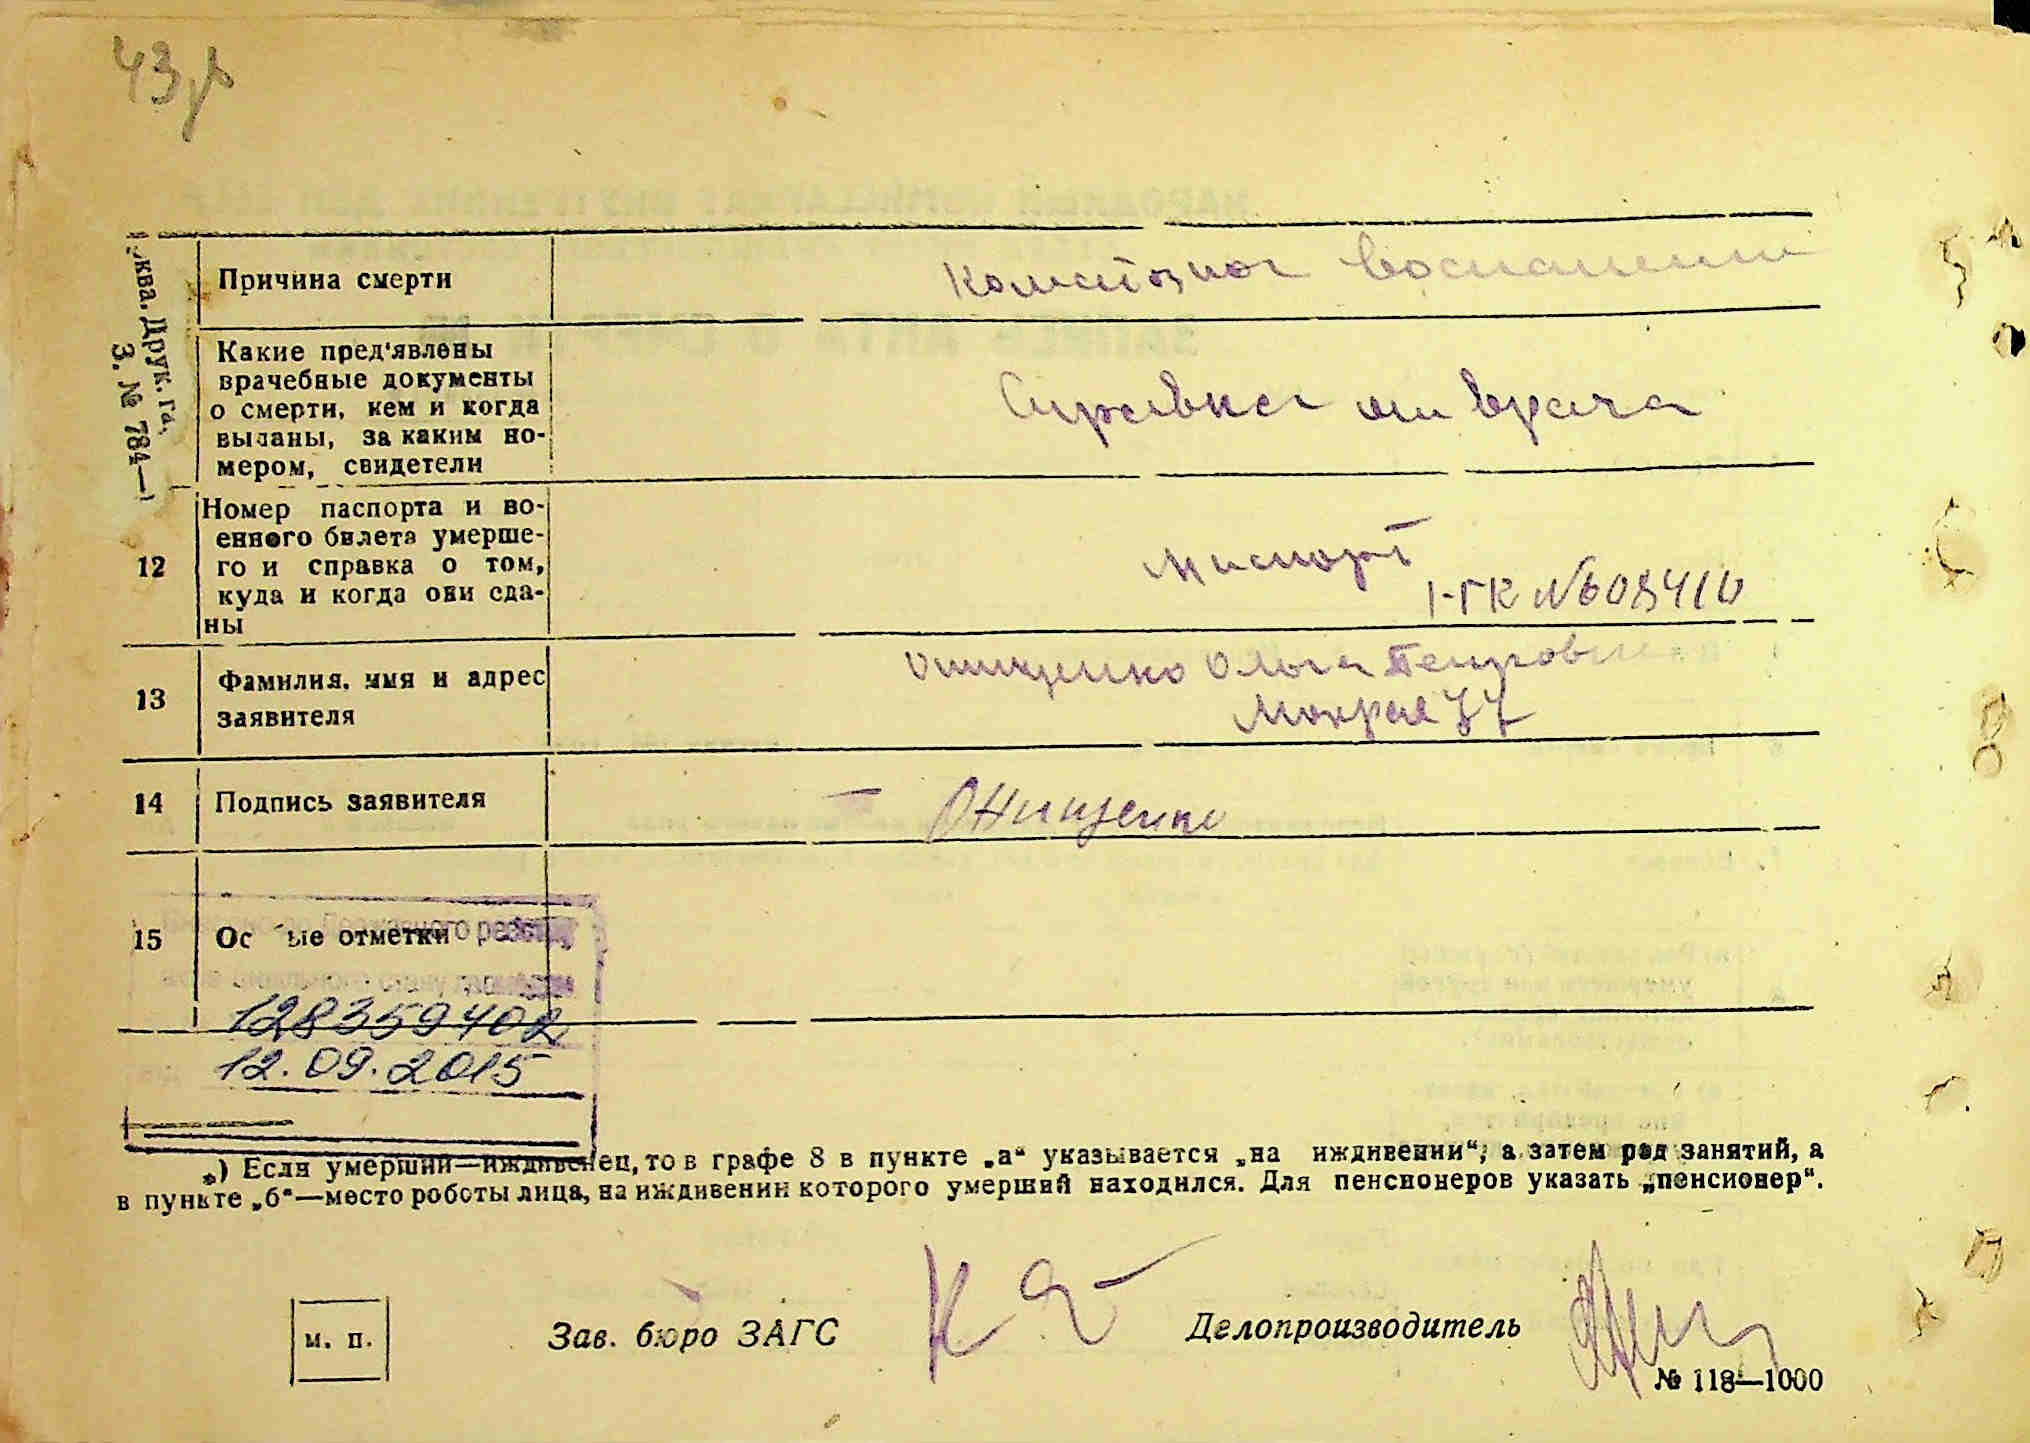 43
Причина смерти
Какие пред'явлены
врачебные документы
о смерти, кем и когда
выданы, за каким но-
мером, свидетели
Справка от врача
ква. Друк. га,
З. № 784—
12
Номер паспорта и во-
енного билета умерше-
го и справка о том,
куда и когда они сда-
ны
Паспорт
I-ГК №608410
13
Фамилия, имя и адрес
заявителя
Онищенко Ольга Петровна
Мокрая 77
14
Подпись заявителя
Онищенко
15
Ос ые отметки
128359402
12.09.2015
*) Если умерший—иждивенец, то в графе 8 в пункте „а“ указывается „на иждивении“, а затем род занятий, а
в пункте „б“—место роботы лица, на иждивении которого умерший находился. Для пенсионеров указать „пенсионер“.
м. п.
Зав. бюро ЗАГС
Делопроизводитель
№ 118—1000